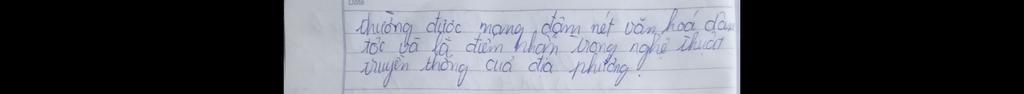 thường được mang đậm nét văn hoá dân
tộc và là điểm nhấn trong nghệ thuật
truyền thống của địa phương.